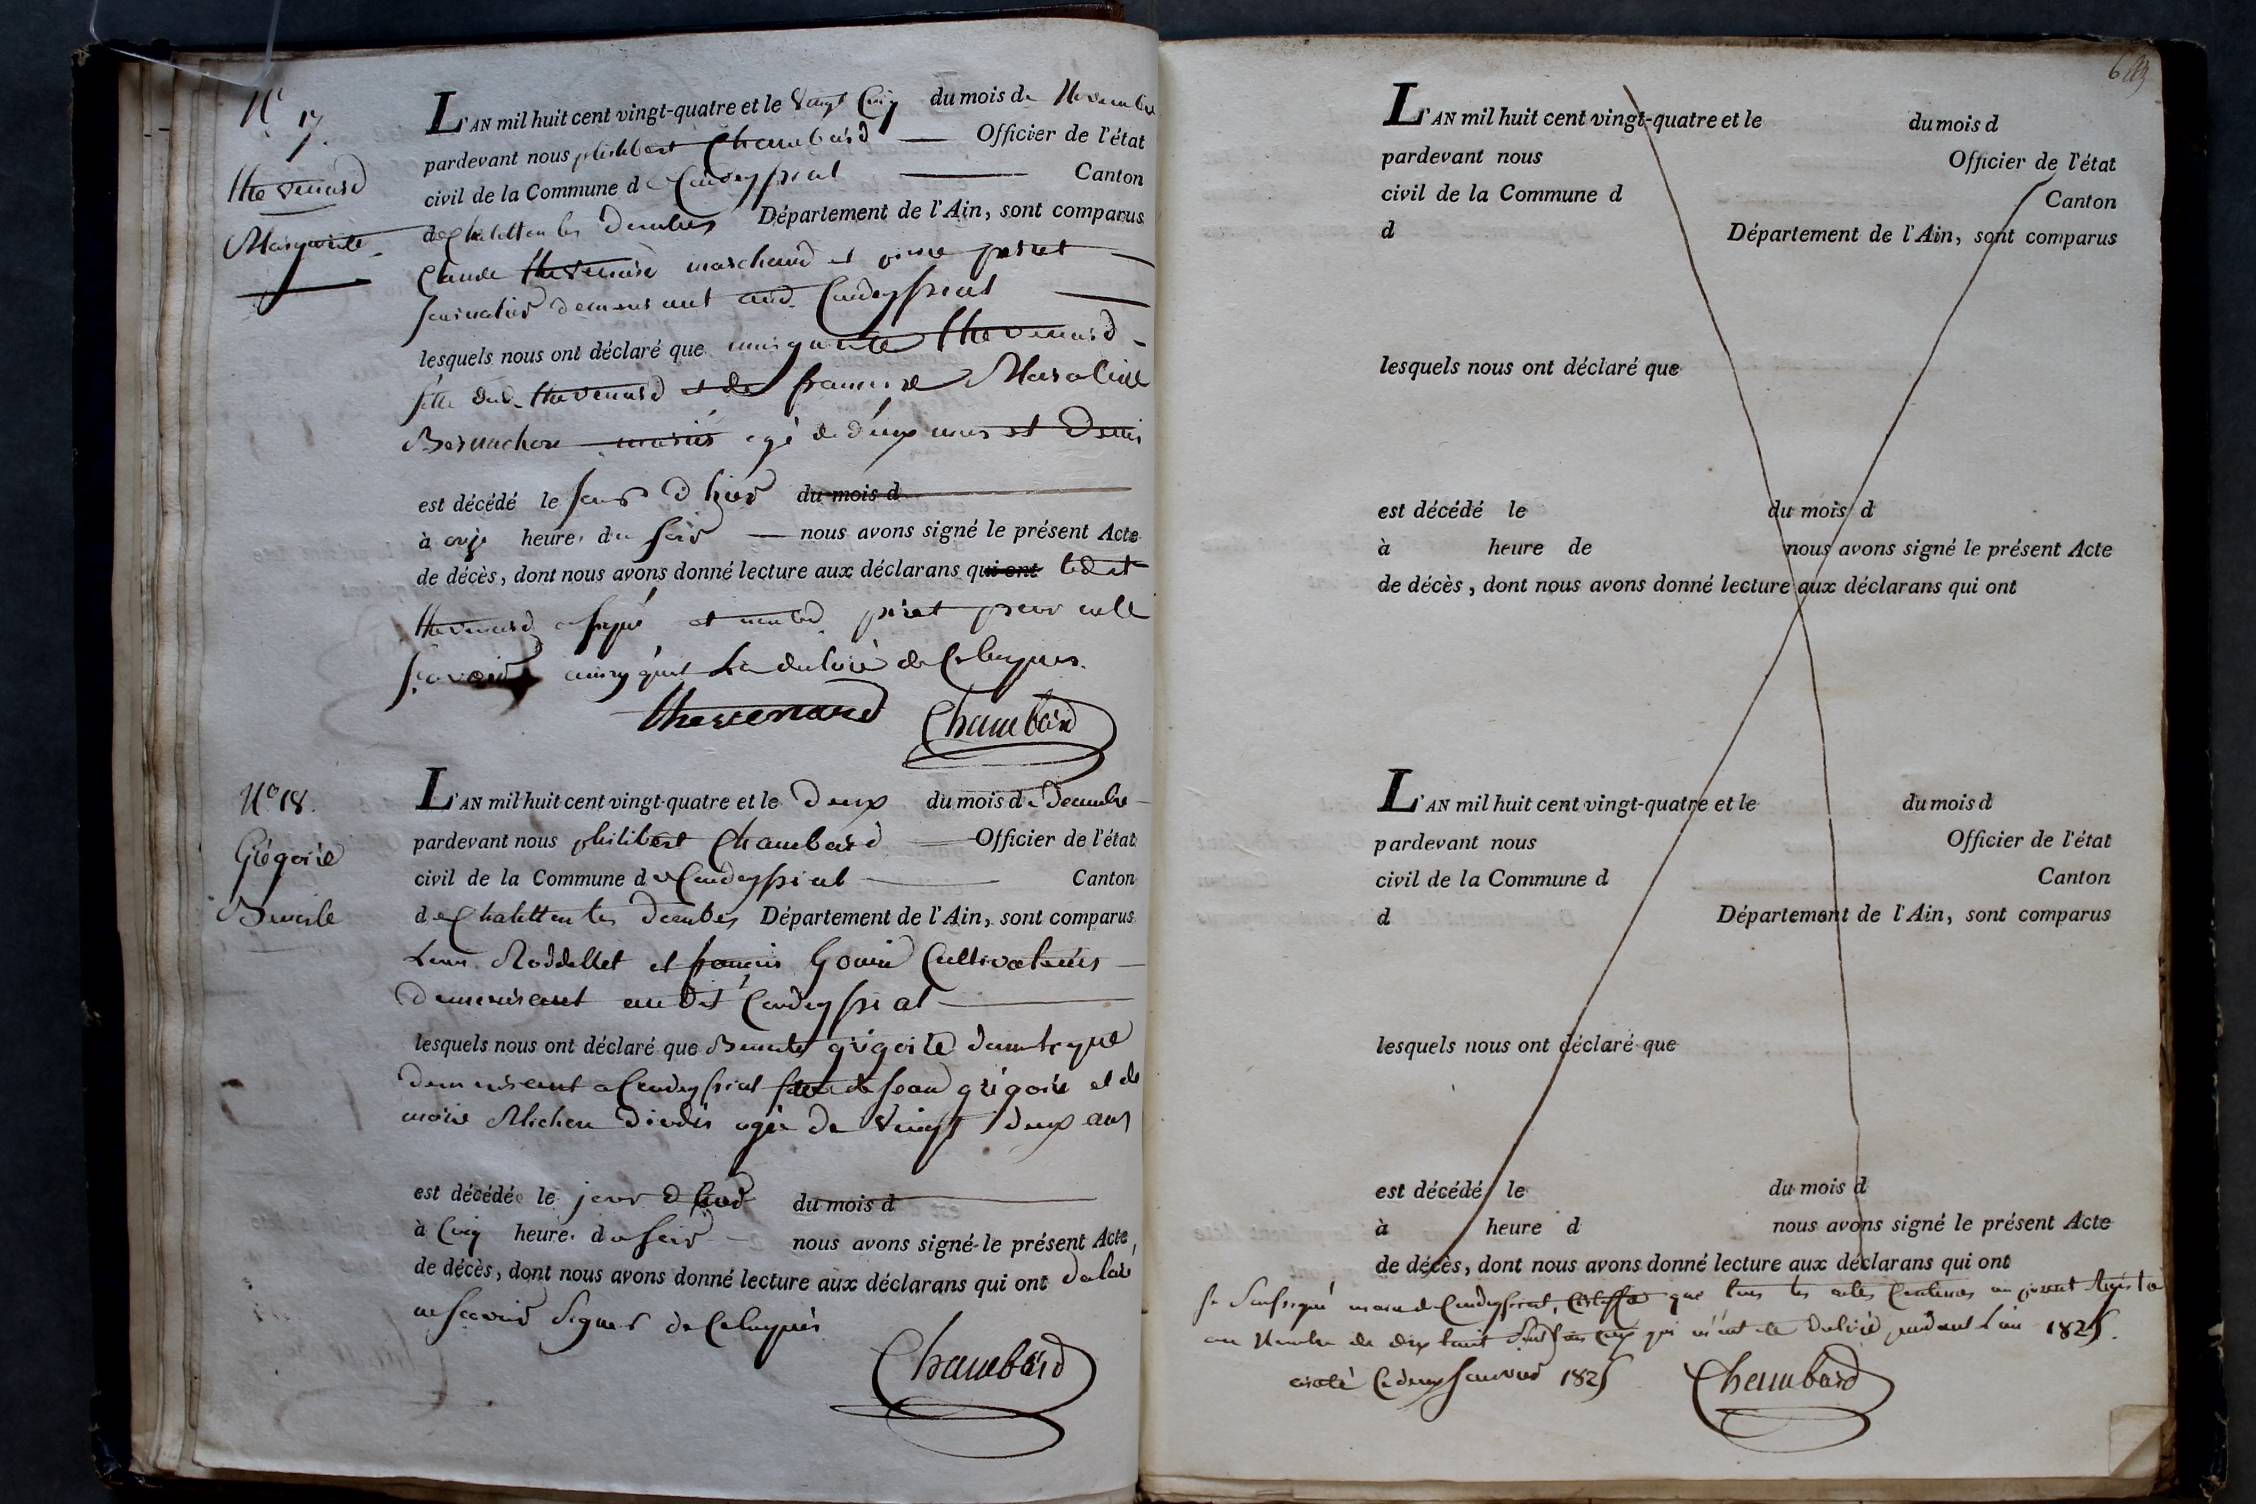 N° 17.
thevenard
Marguerite
L'AN mil huit cent vingt-quatre et le vingt Cinq du mois de Novembre
pardevant nous philibert Chambard Officier de l'état
civil de la Commune de Condeyssiat Canton
de Chatillon les Dombes Département de l'Ain, sont comparus
Claude thevenard marchand et pierre perret
journalier demeurant aud. Condeyssiat
lesquels nous ont déclaré que marguerite thevenard
fille dud. thevenard et de francoise
Bernachon mariés agé de deux mois et demi
est décédé le jour d hier du mois d
à onze heure. du soir nous avons signé le présent Acte
de décès, dont nous avons donné lecture aux déclarans qui ont ledit
thevenard a signé et non led. perret pour ne le
scavoir ainsy qu'il l'a déclaré de Ce Requis.
thevenard Chambard
N° 18.
Grégoire
Benoite
L'AN mil huit cent vingt-quatre et le deux du mois de Décembre
pardevant nous philibert Chambard Officier de l'état
civil de la Commune de Condeyssiat Canton
de Chatillon les Dombes Département de l'Ain, sont comparus
Louis Roddellet et francois Gouin Cultivateurs
demeurant au dit Condeyssiat
lesquels nous ont déclaré que Benoite grégoire domestique
demeurant a Condeyssiat fille de Jean grégoire et de
marie Michon agée de vingt deux ans
est décédée le jour d hier du mois d
à Cinq heure. du soir nous avons signé le présent Acte
de décès, dont nous avons donné lecture aux déclarans qui ont déclaré
ne scavoir signer de Ce Requis.
Chambard
L'AN mil huit cent vingt-quatre et le du mois d
pardevant nous Officier de l'état
civil de la Commune d Canton
d Département de l'Ain, sont comparus
lesquels nous ont déclaré que
est décédé le du mois d
à heure de nous avons signé le présent Acte
de décès, dont nous avons donné lecture aux déclarans qui ont
L'AN mil huit cent vingt-quatre et le du mois d
pardevant nous Officier de l'état
civil de la Commune d Canton
d Département de l'Ain, sont comparus
lesquels nous ont déclaré que
est décédé le du mois d
à heure d nous avons signé le présent Acte
de décès, dont nous avons donné lecture aux déclarans qui ont
Je soussigné maire de Condeyssiat, Certiffie que tous les actes Contenus au présent Registre
au Nombre de dix huit sont ceux qui m'ont été déclaré pendant L'an
arrêté Ce deux Janvier 1825
Chambard